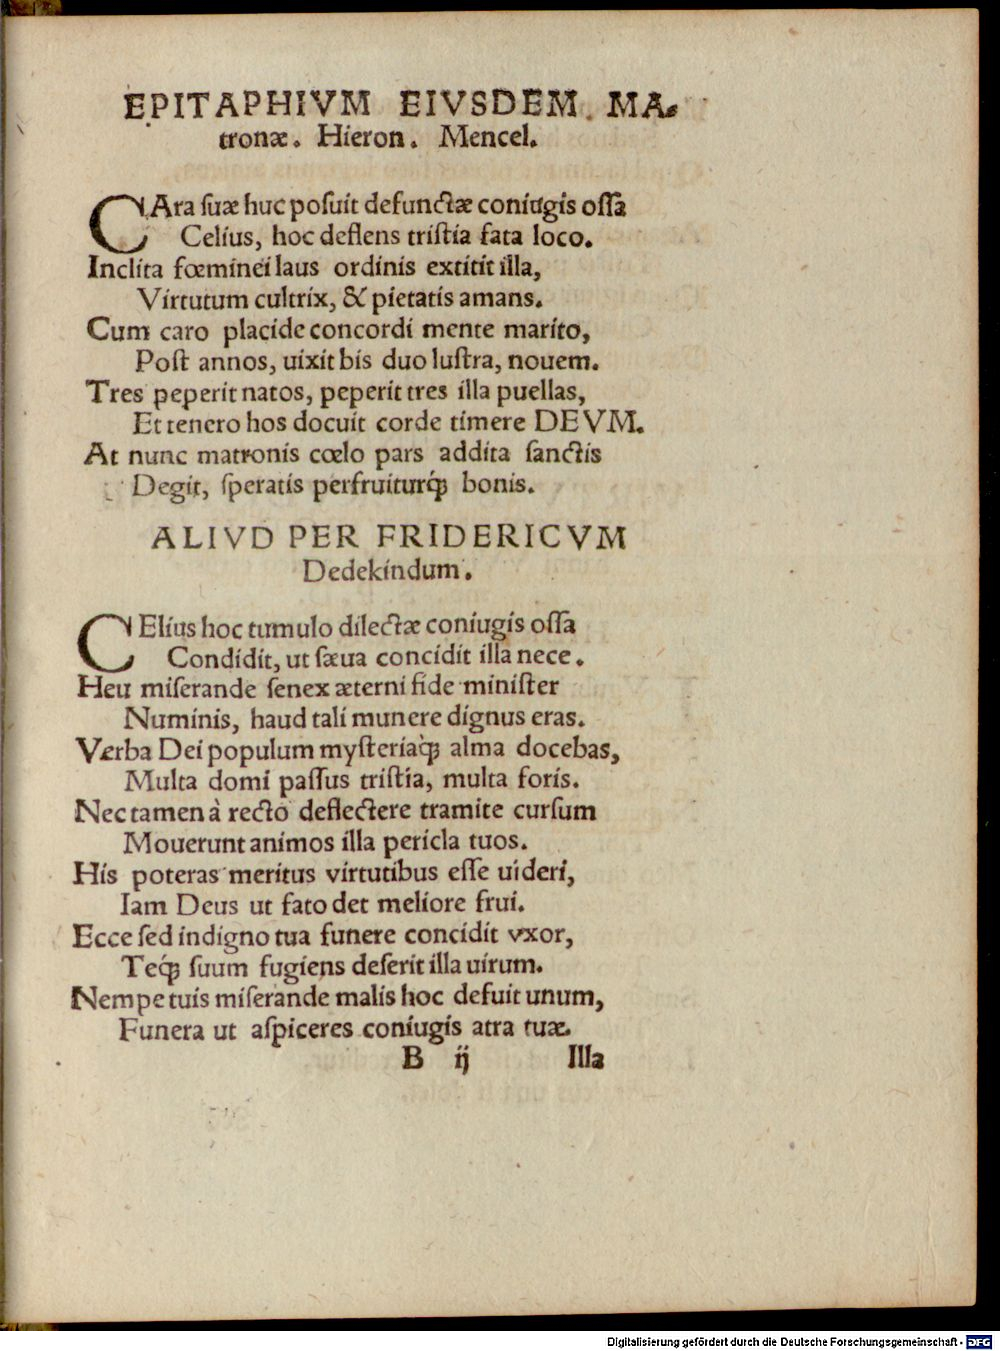 EPITAPHIVM EIVSDEM MA-
tronæ. Hieron. Mencel.
CAra suæ huc posuit defunctæ coniugis ossa
Celius, hoc deflens tristia fata loco.
Inclita fœminei laus ordinis extitit illa,
Virtutum cultrix, & pietatis amans.
Cum caro placide concordi mente marito,
Post annos, uixit bis duo lustra, nouem.
Tres peperit natos, peperit tres illa puellas,
Et tenero hos docuit corde timere DEVM.
At nunc matronis cœlo pars addita sanctis
Degit, speratis perfruiturq́; bonis.
ALIVD PER FRIDERICVM
Dedekindum.
CElius hoc tumulo dilectæ coniugis ossa
Condidit, ut sæua concidit illa nece.
Heu miserande senex æterni fide minister
Numinis, haud tali munere dignus eras.
Verba Dei populum mysteriaq́; alma docebas,
Multa domi passus tristia, multa foris.
Nec tamen à recto deflectere tramite cursum
Mouerunt animos illa pericla tuos.
His poteras meritus virtutibus esse uideri,
Iam Deus ut fato det meliore frui.
Ecce sed indigno tua funere concidit vxor,
Teq́; suum fugiens deserit illa uirum.
Nempe tuis miserande malis hoc defuit unum,
Funera ut aspiceres coniugis atra tuæ.
B ij Illa
Digitalisierung gefördert durch die Deutsche Forschungsgemeinschaft - DFG